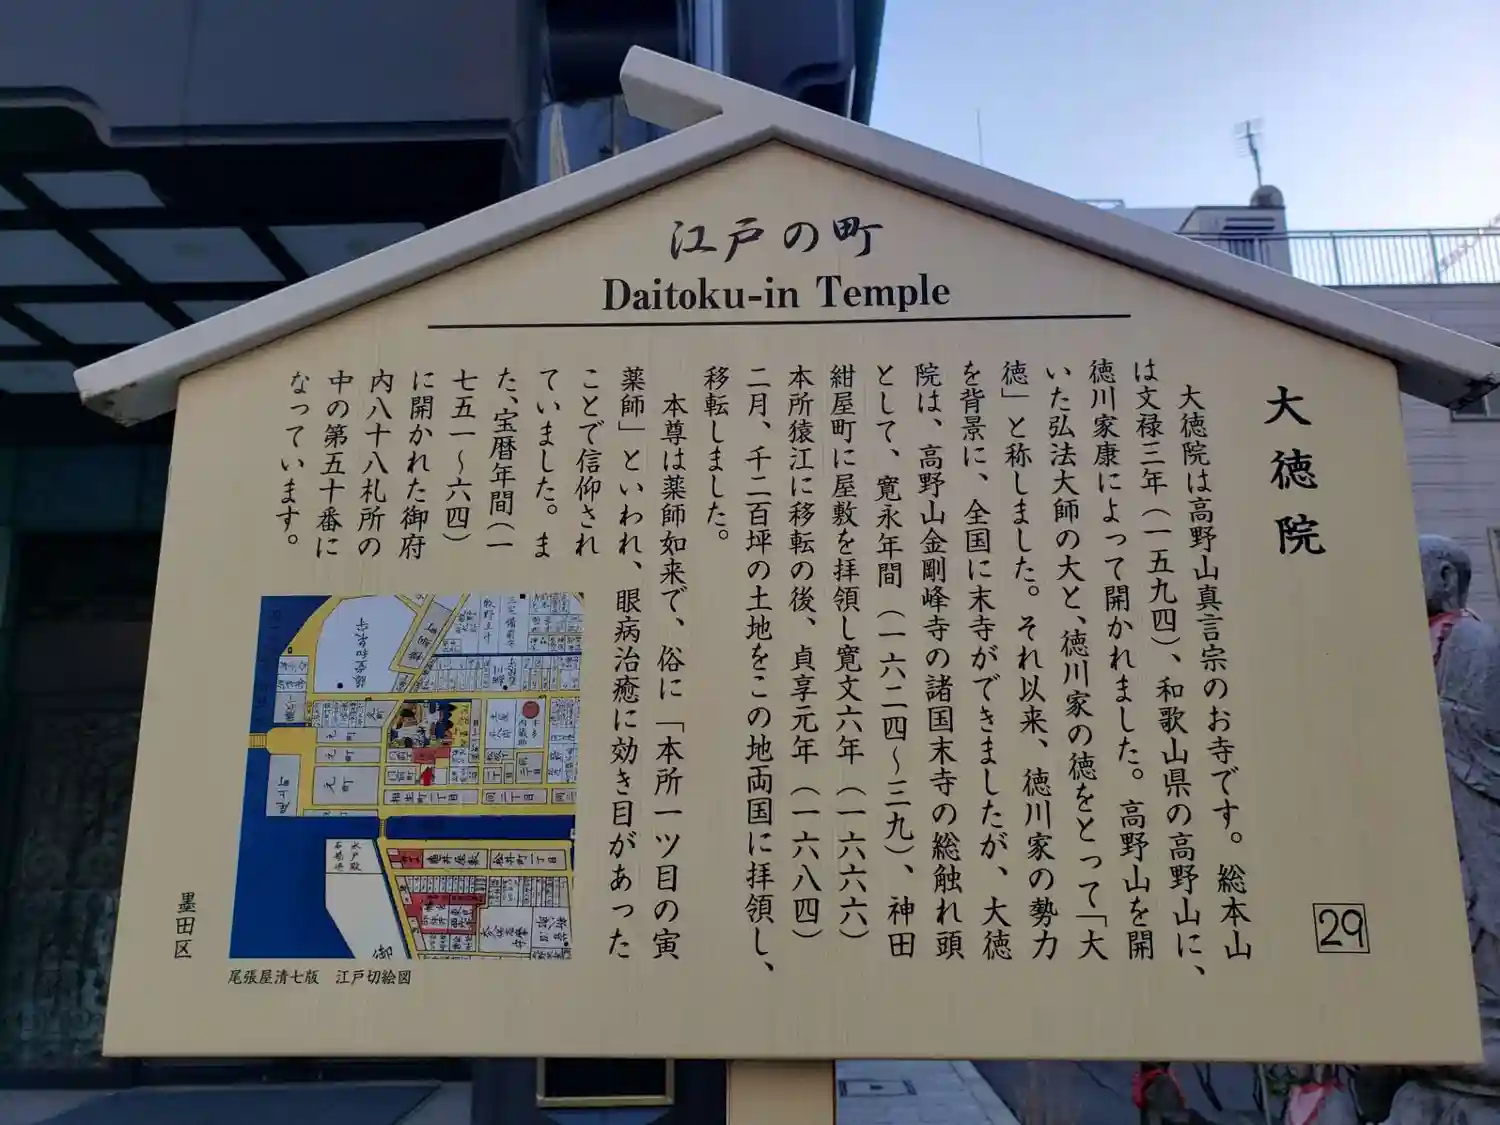 江戸の町
Daitoku-in Temple
大徳院
大徳院は高野山真言宗のお寺です。総本山
は文禄三年（一五九四）、和歌山県の高野山に、
徳川家康によって開かれました。高野山を開
いた弘法大師の大と、徳川家の徳をとって「大
徳」と称しました。それ以来、徳川家の勢力
を背景に、全国に末寺ができましたが、大徳
院は、高野山金剛峰寺の諸国末寺の総触れ頭
として、寛永年間（一六二四～三九）、神田
紺屋町に屋敷を拝領し寛文六年（一六六六）
本所猿江に移転の後、貞享元年（一六八四）
二月、千二百坪の土地をこの地両国に拝領し、
移転しました。
本尊は薬師如来で、俗に「本所一ツ目の寅
薬師」といわれ、眼病治癒に効き目があった
ことで信仰され
ていました。ま
た、宝暦年間（一
七五一～六四）
に開かれた御府
内八十八札所の
中の第五十番に
なっています。
29
尾張屋清七版　江戸切絵図
墨田区